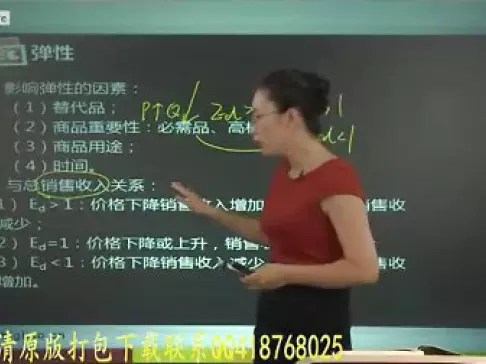 弹性
影响弹性的因素：
（1）替代品； P↑Q
（2）商品重要性：必需品、高
（3）商品用途；
（4）时间。
与总销售收入关系：
1） Ed＞1：价格下降销售收入增加 销售收
减少；
2） Ed=1：价格下降或上升，销售
3） Ed＜1：价格下降销售收入减少 售收入
增加。
清原版打包下载联系QQ418768025